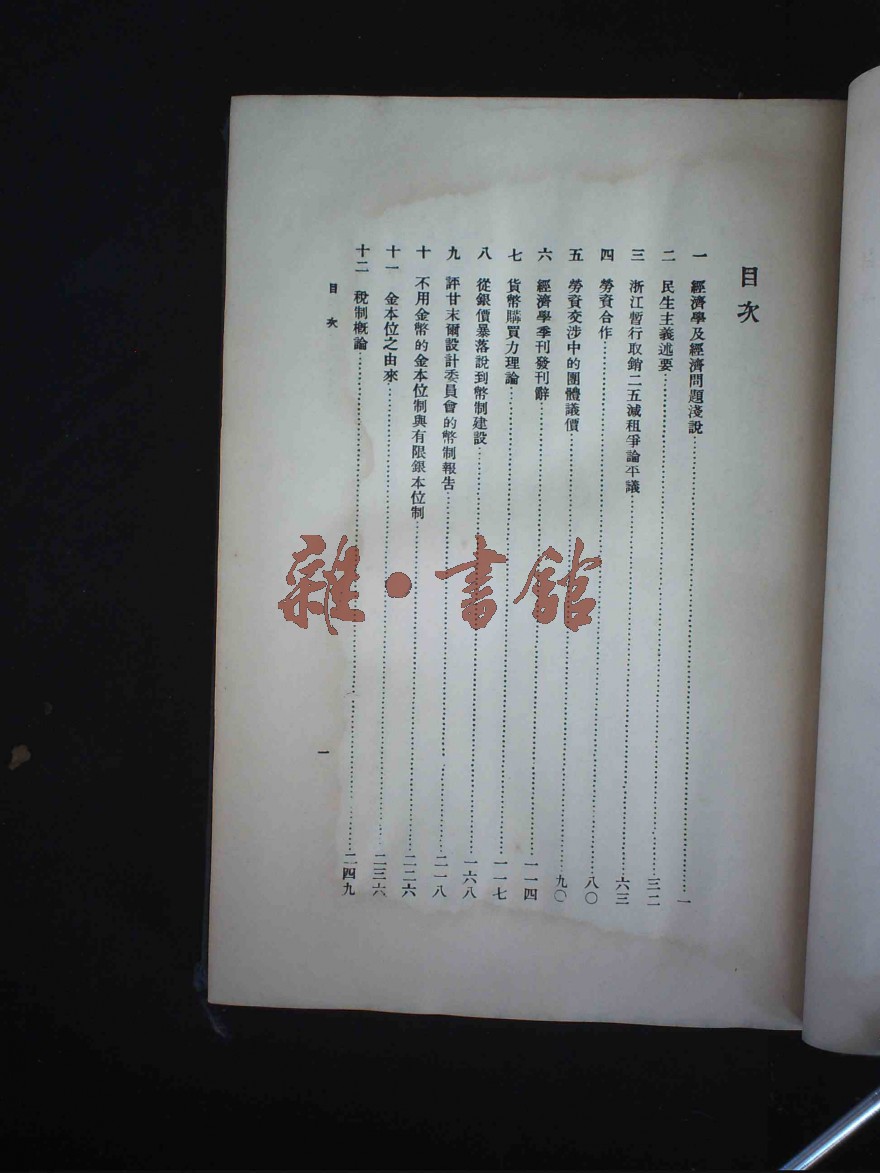 目次
一 經濟學及經濟問題淺說……一
二 民生主義述要……三二
三 浙江暫行取銷二五減租爭論平議……六三
四 勞資合作……八〇
五 勞資交涉中的團體議價……九〇
六 經濟學季刊發刊辭……一一四
七 貨幣購買力理論……一一七
八 從銀價暴落說到幣制建設……一六八
九 評甘末爾設計委員會的幣制報告……二一八
十 不用金幣的金本位制與有限銀本位制……二二六
十一 金本位之由來……二三六
十二 稅制概論……二四九
目次 一
雜·書館